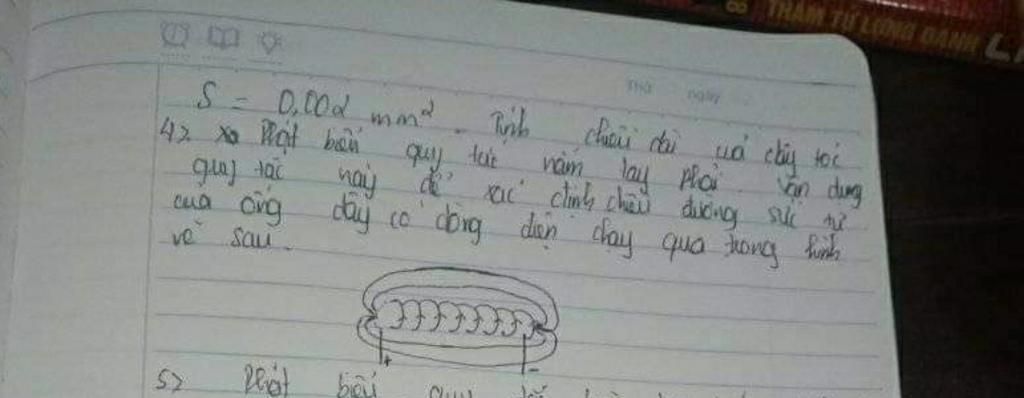 THÁM TỬ LỪNG DANH
Thứ ngày
S = 0,002 mm². Tính chiều dài của dây tóc
4> Phát biểu quy tắc nắm tay phải. Vận dụng
quy tắc này để xác định chiều đường sức từ
của ống dây có dòng điện chạy qua trong hình
vẽ sau.
+ -
5> Phát biểu quy tắc